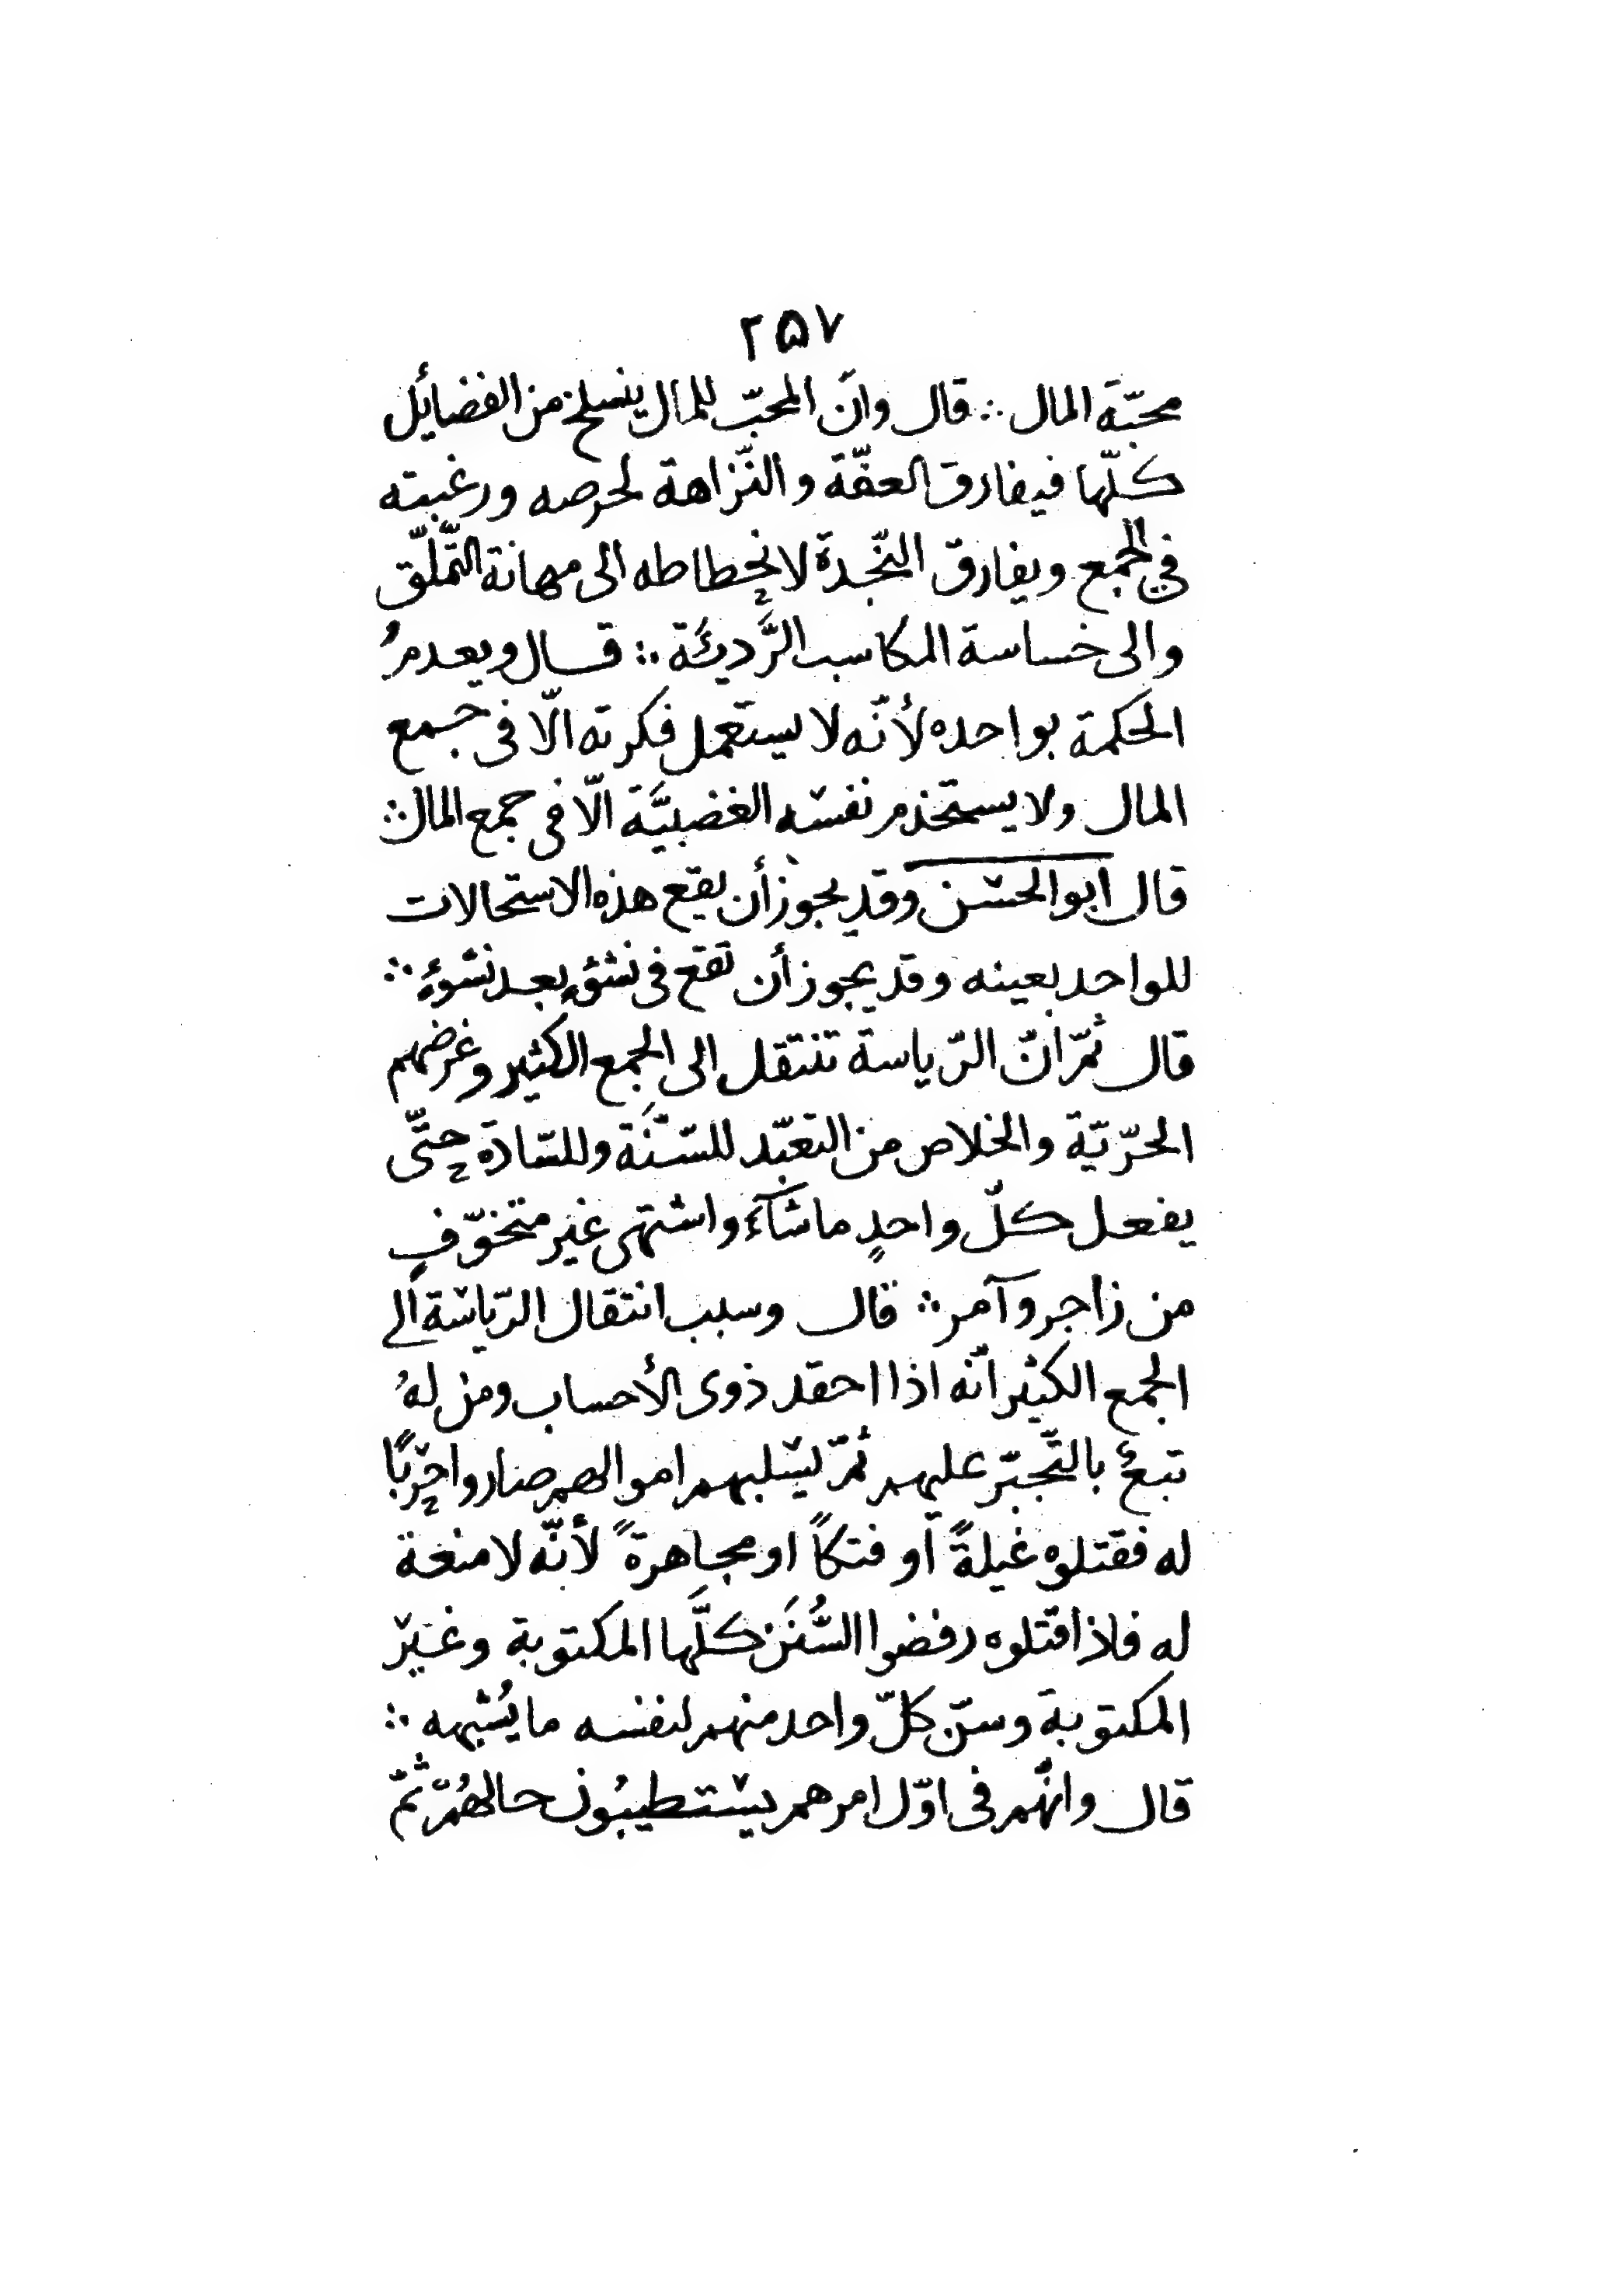 ٢٥٧
محبّة المال ∴ قال وانّ المحبّ للمال ينسلخ من الفضائل
كلّها فيفارق العفّة والنّزاهة لحرصه ورغبته
في الجمع ويفارق النّجدة لانحطاطه الى مهانة التّملّق
والى خساسة المكاسب الرَّديئَة ∴ قال ويعدمُ
الحكمة بواحده لأنّه لا يستعمل فكرته الّا فى جمع
المال ولا يستخدم نفسه الغضبيَّة الّا فى جمع المال ∴
قال ابو الحسن وقد يجوز أن يقع هذه الاستحالات
للواحد بعينه وقد يجوز أن تقع فى نشؤٍ بعد نشوءٍ ∴
قال ثمّ انّ الرّياسة تنتقل الى الجمع الكثير وغرضهم
الحرّيّة والخلاص من التعبّد للسّنَّة وللسّادة حتّى
يفعل كلّ واحدٍ ما شآءَ واشتهى غير متخوّفٍ
من زاجر وآمر ∴ قال وسبب انتقال الرّياسة الى
الجمع الكثير انّه اذا احقد ذوى الأحساب ومن لهُ
تبعٌ بالتّجبّر عليهم ثمّ يسلبهم اموالهم صاروا حربًا
له فقتلوه غيلةً او فتكاً او مجاهرةً لأنّه لا منعة
له فاذا قتلوه رفضوا السُّنَن كلَّها المكتوبة وغير
المكتوبة وسنّ كلّ واحد منهم لنفسه ما يُشبهه ∴
قال وانّهم فى اوّل امرهم يستطيبُون حالهُم ثمّ